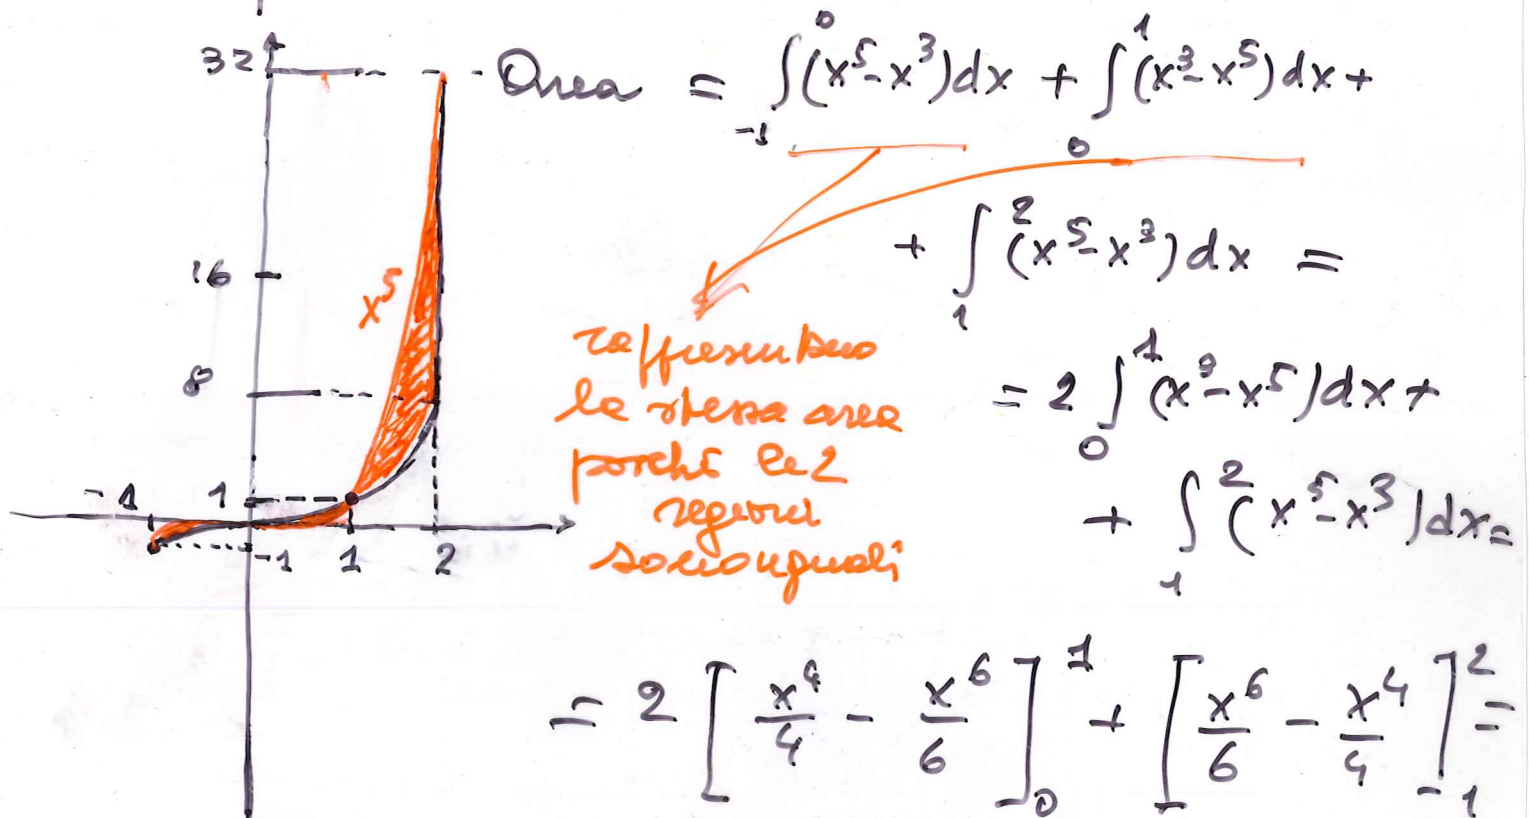 32
16
8
-1 1
-1 1 2
x⁵
Area = ∫₋₁⁰ (x⁵-x³)dx + ∫₀¹ (x³-x⁵)dx +
+ ∫₁² (x⁵-x³)dx =
rappresentano
la stessa area
perché le 2
regioni
sono uguali
= 2 ∫₀¹ (x³-x⁵)dx +
+ ∫₁² (x⁵-x³)dx =
= 2 [x⁴/4 - x⁶/6]₀¹ + [x⁶/6 - x⁴/4]₁² =